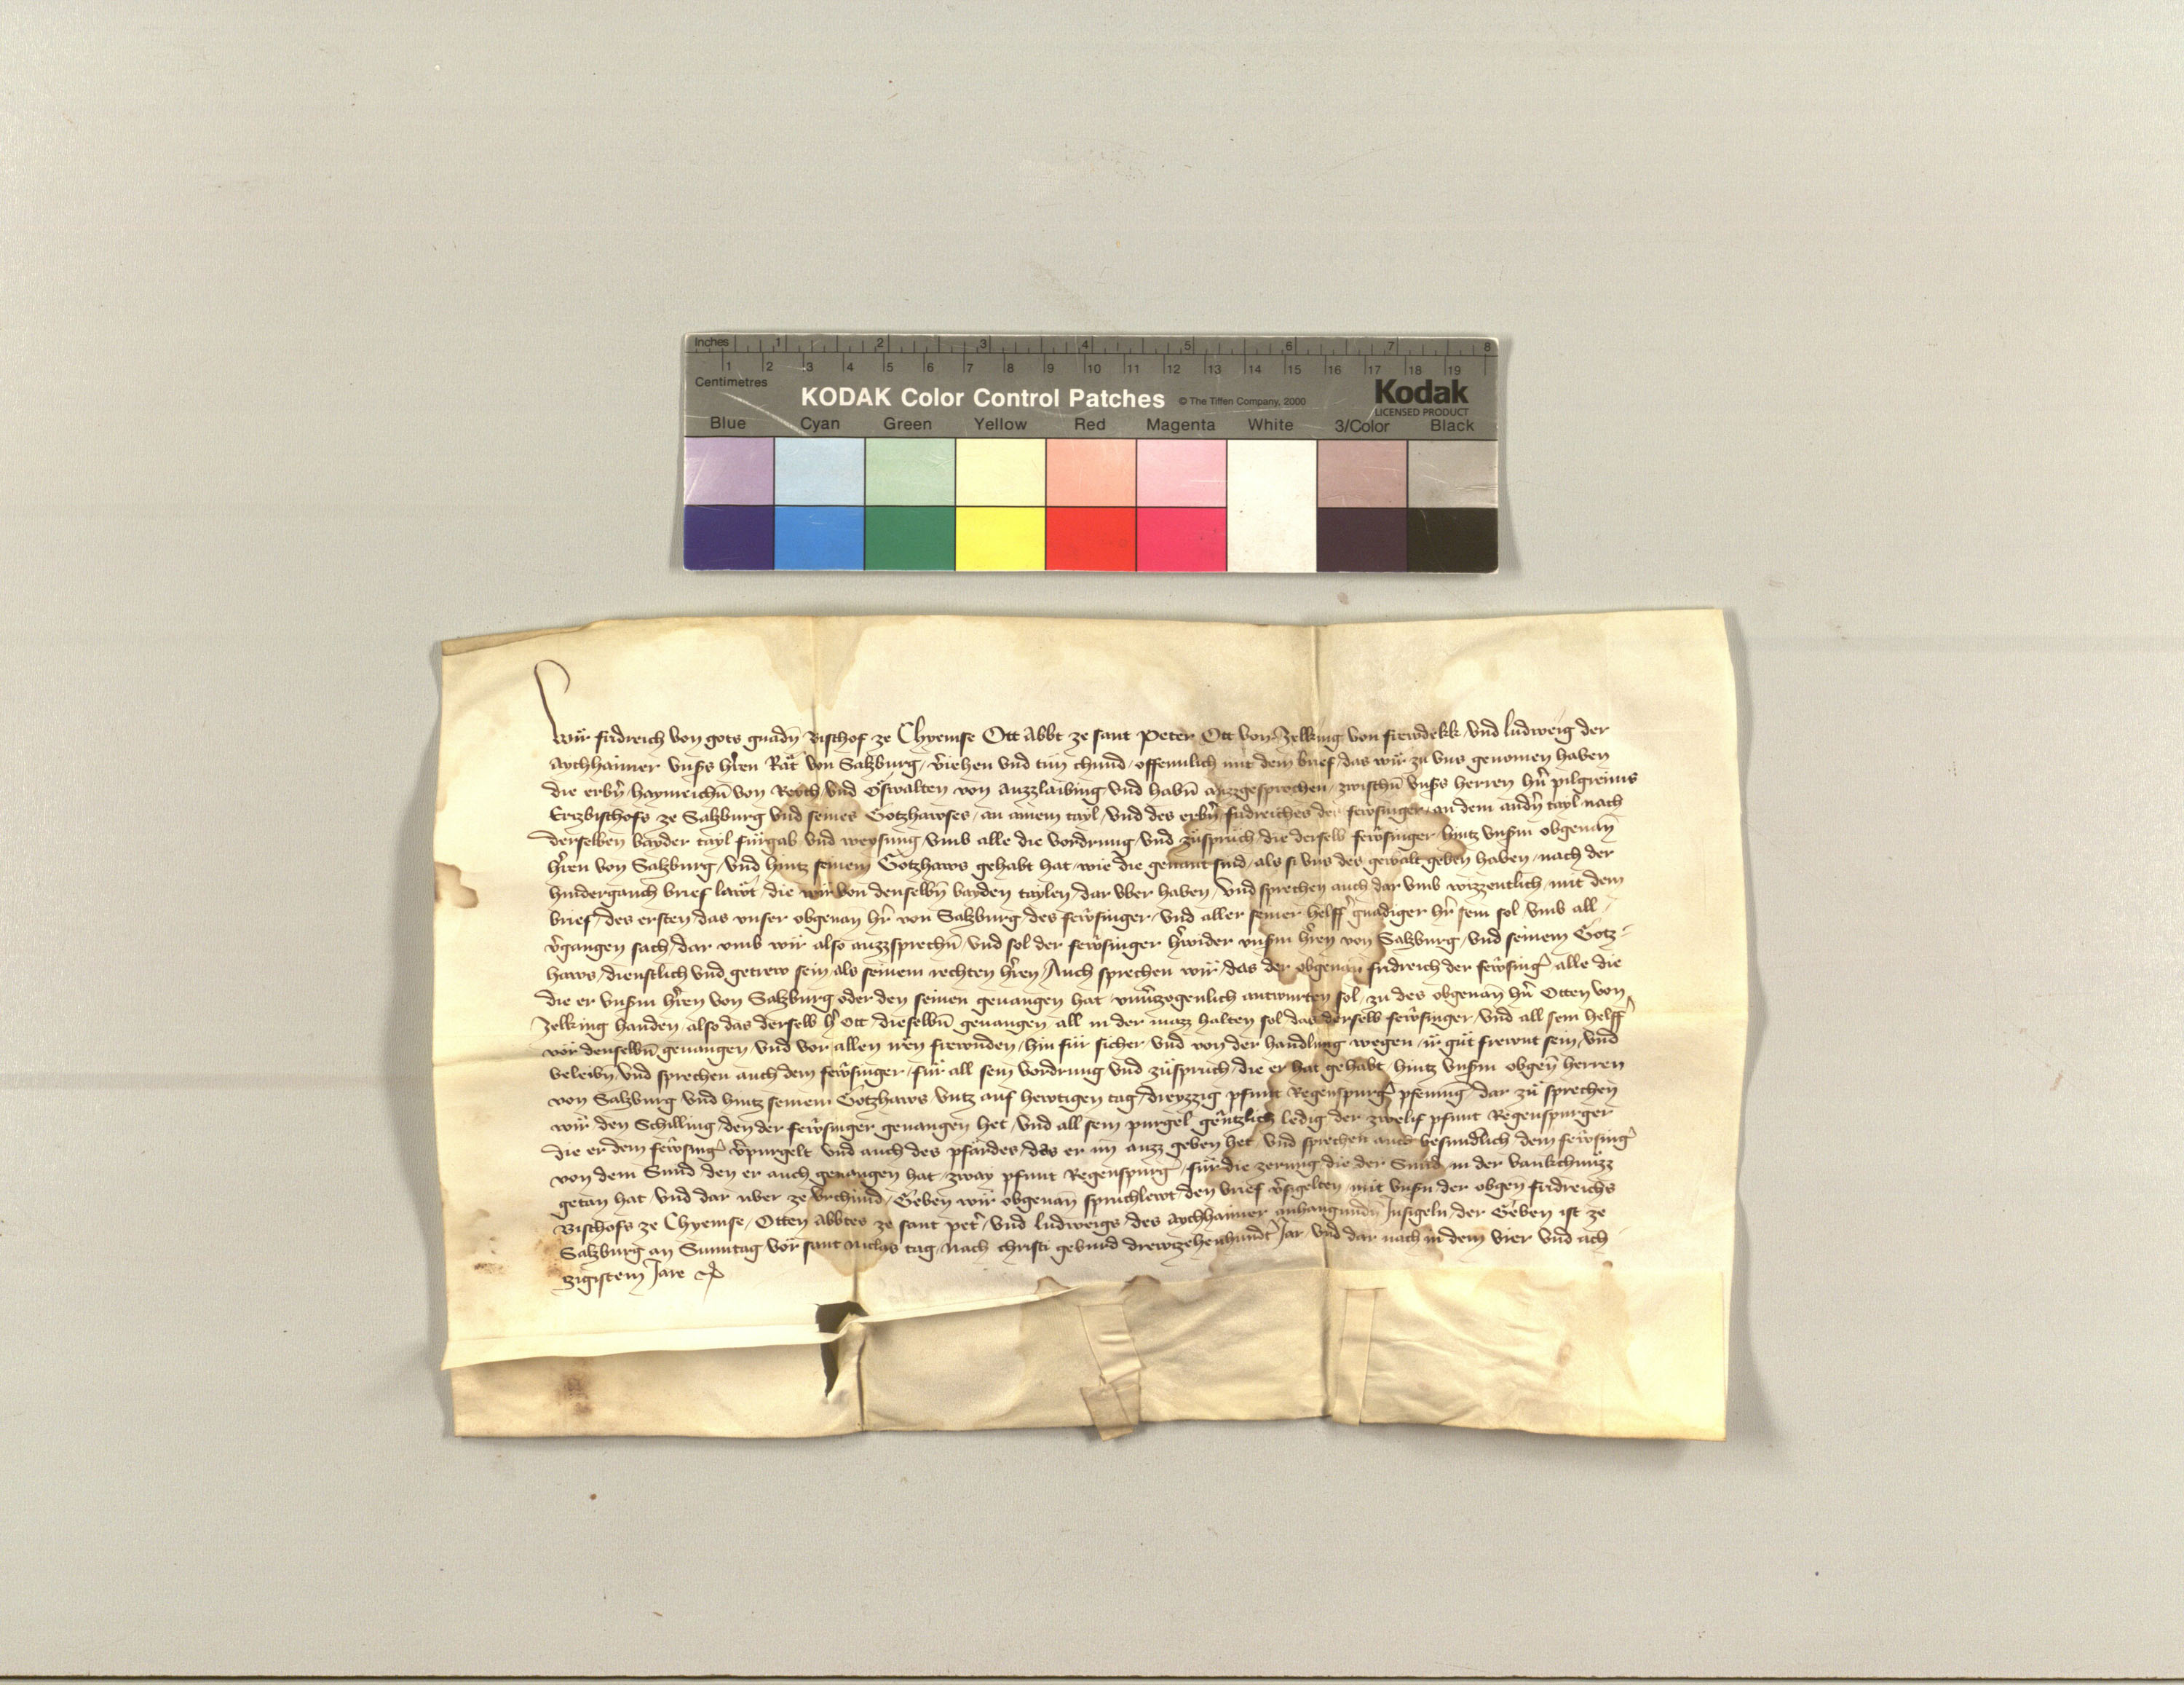 Inches 1 2 3 4 5 6 7 8
1 2 3 4 5 6 7 8 9 10 11 12 13 14 15 16 17 18 19
Centimetres
KODAK Color Control Patches © The Tiffen Company, 2000 Kodak
LICENSED PRODUCT
Blue Cyan Green Yellow Red Magenta White 3/Color Black
Wir fridreich von gots gnadn̄ Bischof ze Chyemse Ott Abbt ze sant Peter Ott von Zelking von frewdekk vnd ludweig der
Aychhaimer vnsers hr̄en Rät von Salzburg / v̄iehen vnd tun chund / offennlich mit dem brief / das wir zu vns genomen haben
die erbn̄ / haymreichn̄ von Reoth vnd Oswalten von Auzzlaibing vnd habn̄ auzzgesprochen / zwischn̄ vnsers herren hn̄ pilgreims
Erzbischofs ze Salzburg vnd seines Gotzhawses / an ainem tayl / vnd des erbn̄ fridreiches des fewrsinger / an dem andn̄ tayl nach
derselben bayder tayl fürgab vnd weysung / vmb alle die vordrung / vnd züspruch / die derselb fewrsinger / hintz vnserm obgenan̄
hr̄en von Salzburg / vnd hintz seinem Gotzhaws gehabt hat / wie die genant sind / als si vns des gewalt geben haben / nach der
hindergankch brief lawt / die wir von denselbn̄ bayden taylen / dar vber haben / vnd sprechen auch dar vmb wizzentlich / mit dem
brief / des ersten / das vnser obgenan hr̄ von Salzburg / des fewrsinger / vnd aller seiner helff̄ gnädiger hr̄ sein sol / vmb all
v̄gangen sach / dar vmb wir also auzzsprechn̄ / vnd sol der fewrsinger h̄wider vnserm hr̄en von Salzburg / vnd seinem Gotz-
haws / dienstlich vnd getrew sein / als seinem rechten hr̄en / Auch sprechen wir / das der obgenan fridreich der fewrsinḡ alle die
die er vnserm hr̄en von Salzburg oder den seinen geuangen hat / vnu̓zogenlich antwurten sol / zu des obgenan̄ hn̄ Otten von
Zelking handen / also das derselb h̄ Ott / dieselbn̄ geuangen / all in der mazz halten sol / das derselb fewrsinger / vnd all sein helff̄
vor denselbn̄ geuangen / vnd vor allen iren frewnden / hin für sicher / vnd von der handlung wegen / ir güt frewnt sein / vnd
beleibn̄ / vnd sprechen auch dem fewrsinger / für all sein vordrung vnd züspruch / die er hat gehabt / hintz vnserm obgen̄ herren
von Salzburg vnd hintz seinem Gotzhaws vntz auf hewtigen tag / dreyzzig pfunt Regenspurḡ pfennig / dar zü sprechen
wir den Schilling / den der fewrsinger geuangen het / vnd all sein purgel gentzlich ledig der zwelif pfunt Regenspurger
die er dem fewrsinḡ v̄purgelt vnd auch des pfärdes / das er im auzz geben het / vnd sprechen auch besundlich dem fewrsinḡ
von dem Smid den er auch geuangen hat / zway pfunt Regenspurḡ / für die zerung die der Smid in der vankchnüzz
getan hat / vnd dar vber ze vrchünd / Geben wir obgenan̄ spruchlewt / den brief v̄sigelten / mit vnsn̄ der obgen fridreichs
Bischofs ze Chyemse / Otten Abbtes ze sant pet̄ / vnd ludweigs / des Aychhaimer anhangunden Insigeln / der Geben ist ze
Salzburg an Sunntag / vor sant Niclas tag / Nach christi geburd drewzehenhundt Jar vnd dar nach in dem vier vnd ach-
zigistem Jare